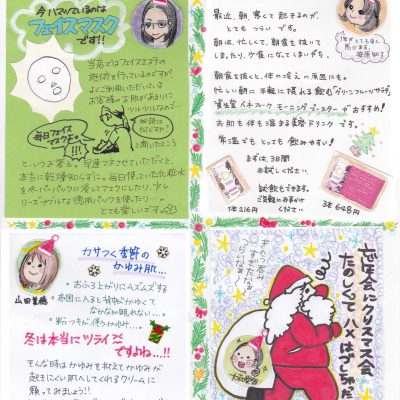 今ハマっているのは
フェイスマスク
です!!
当店ではフェイスエステの
施術を行っているのですが
よくご利用いただいている
お客様のお肌があまりに
ツルツルなので…
毎日フェイス
マスクよ。
秘訣は
なにですか?
と聞いたところ
というお答え。早速マネさせていただくと、
本当に乾燥知らずに。毎日使っていた化粧水
をペーパーパックに浸してマスクにしたり、少し
リーズナブルな徳用パックを使ったり…
とても楽しいです。
最近、朝、寒くて起きるのが、
とても つらい です。
朝は、忙しくて、朝食を抜いて
しまったり、夕食になってしまいがち。
朝食を抜くと、体の冷えの原因にも。
忙しい朝に手軽に摂れる飲むグリーンフルーツサラダ。
資生堂 ベネフィーク モーニングブースターがおすすめ!
お肌も体も温まる美容ドリンク です。
常温でもとっても飲みやすい!
まずは、3日間
お試しください
試飲もできます。
ください
1本216円
3本648円
カサつく季節の
かゆみ肌…
山田
おふろ上がりにムズムズする
布団に入ると背中がかゆくて
なかなか眠れない…。
粉がふくかゆみ
冬は本当にツライ
ですよね…!!
そんな時はかゆみを抑えてかゆみが
起きにくい肌へしてくれるクリームに
頼ってみましょう!!
忘年会にクリスマス会
たのしくってハメはずしちゃだめ